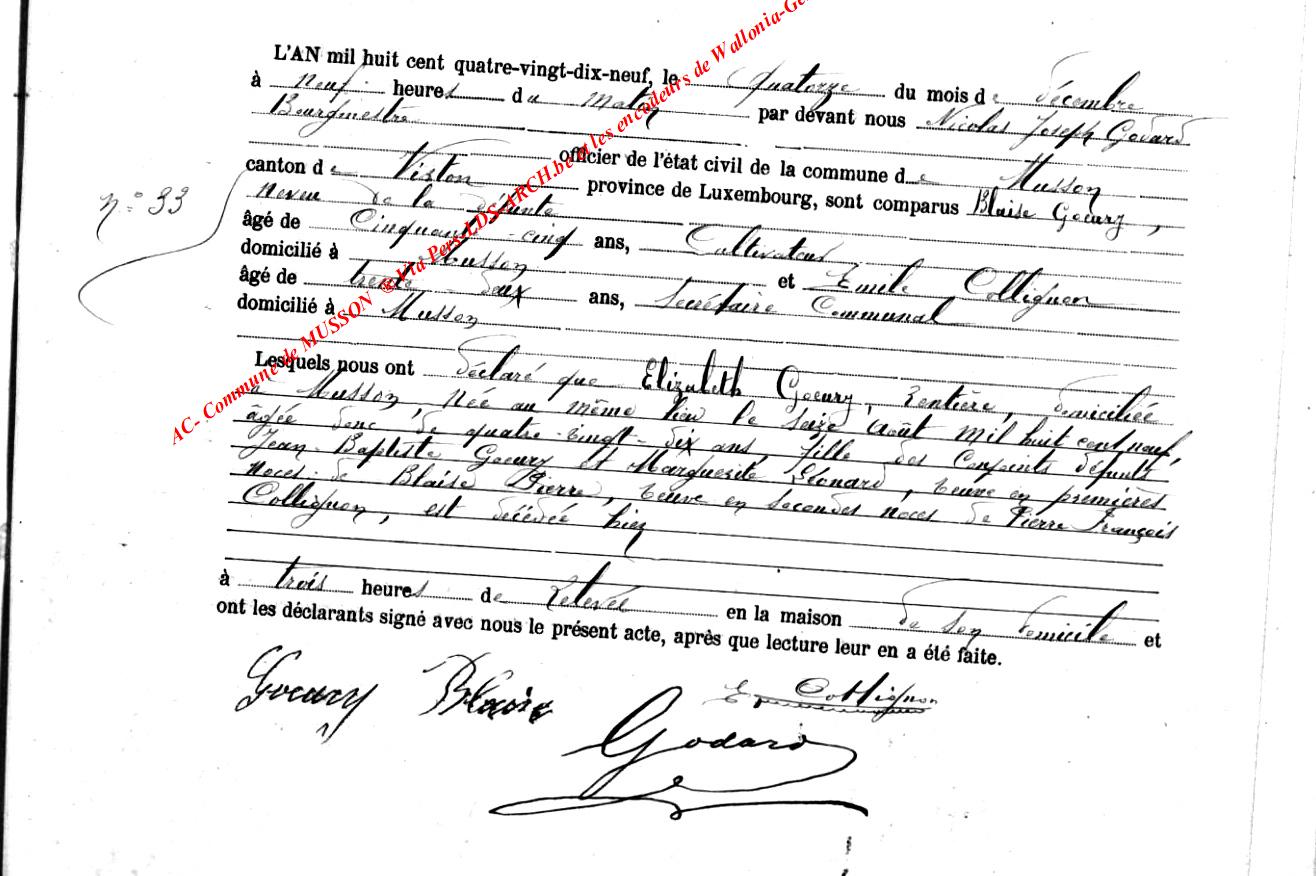 L'AN mil huit cent quatre-vingt-dix-neuf, le quatorze du mois de décembre
à neuf heures du matin par devant nous Nicolas Joseph Godard
Bourgmestre
officier de l'état civil de la commune de Musson
canton de Virton province de Luxembourg, sont comparus Blaise Goeury,
neveu de la défunte
n° 33
âgé de Cinquante-cinq ans, Cultivateur
domicilié à Musson et Emile Collignon
âgé de trente-deux ans, Secrétaire Communal
domicilié à Musson
Lesquels nous ont déclaré que Elizabeth Goeury, Rentière, domiciliée
à Musson, née au même lieu le seize Août mil huit cent neuf,
âgée donc de quatre-vingt-dix ans, fille des Conjoints défunts
Jean-Baptiste Goeury et Marguerite Léonard, veuve en premières
noces de Blaise Pierre, veuve en secondes noces de Pierre François
Collignon, est décédée hier
à trois heures de Relevée en la maison de son domicile et
ont les déclarants signé avec nous le présent acte, après que lecture leur en a été faite.
Goeury Blaise E Collignon
Godard
AC- Commune de MUSSON @ Via Pers-LDS-ARCH.be et les encodeurs de Wallonia-Ge